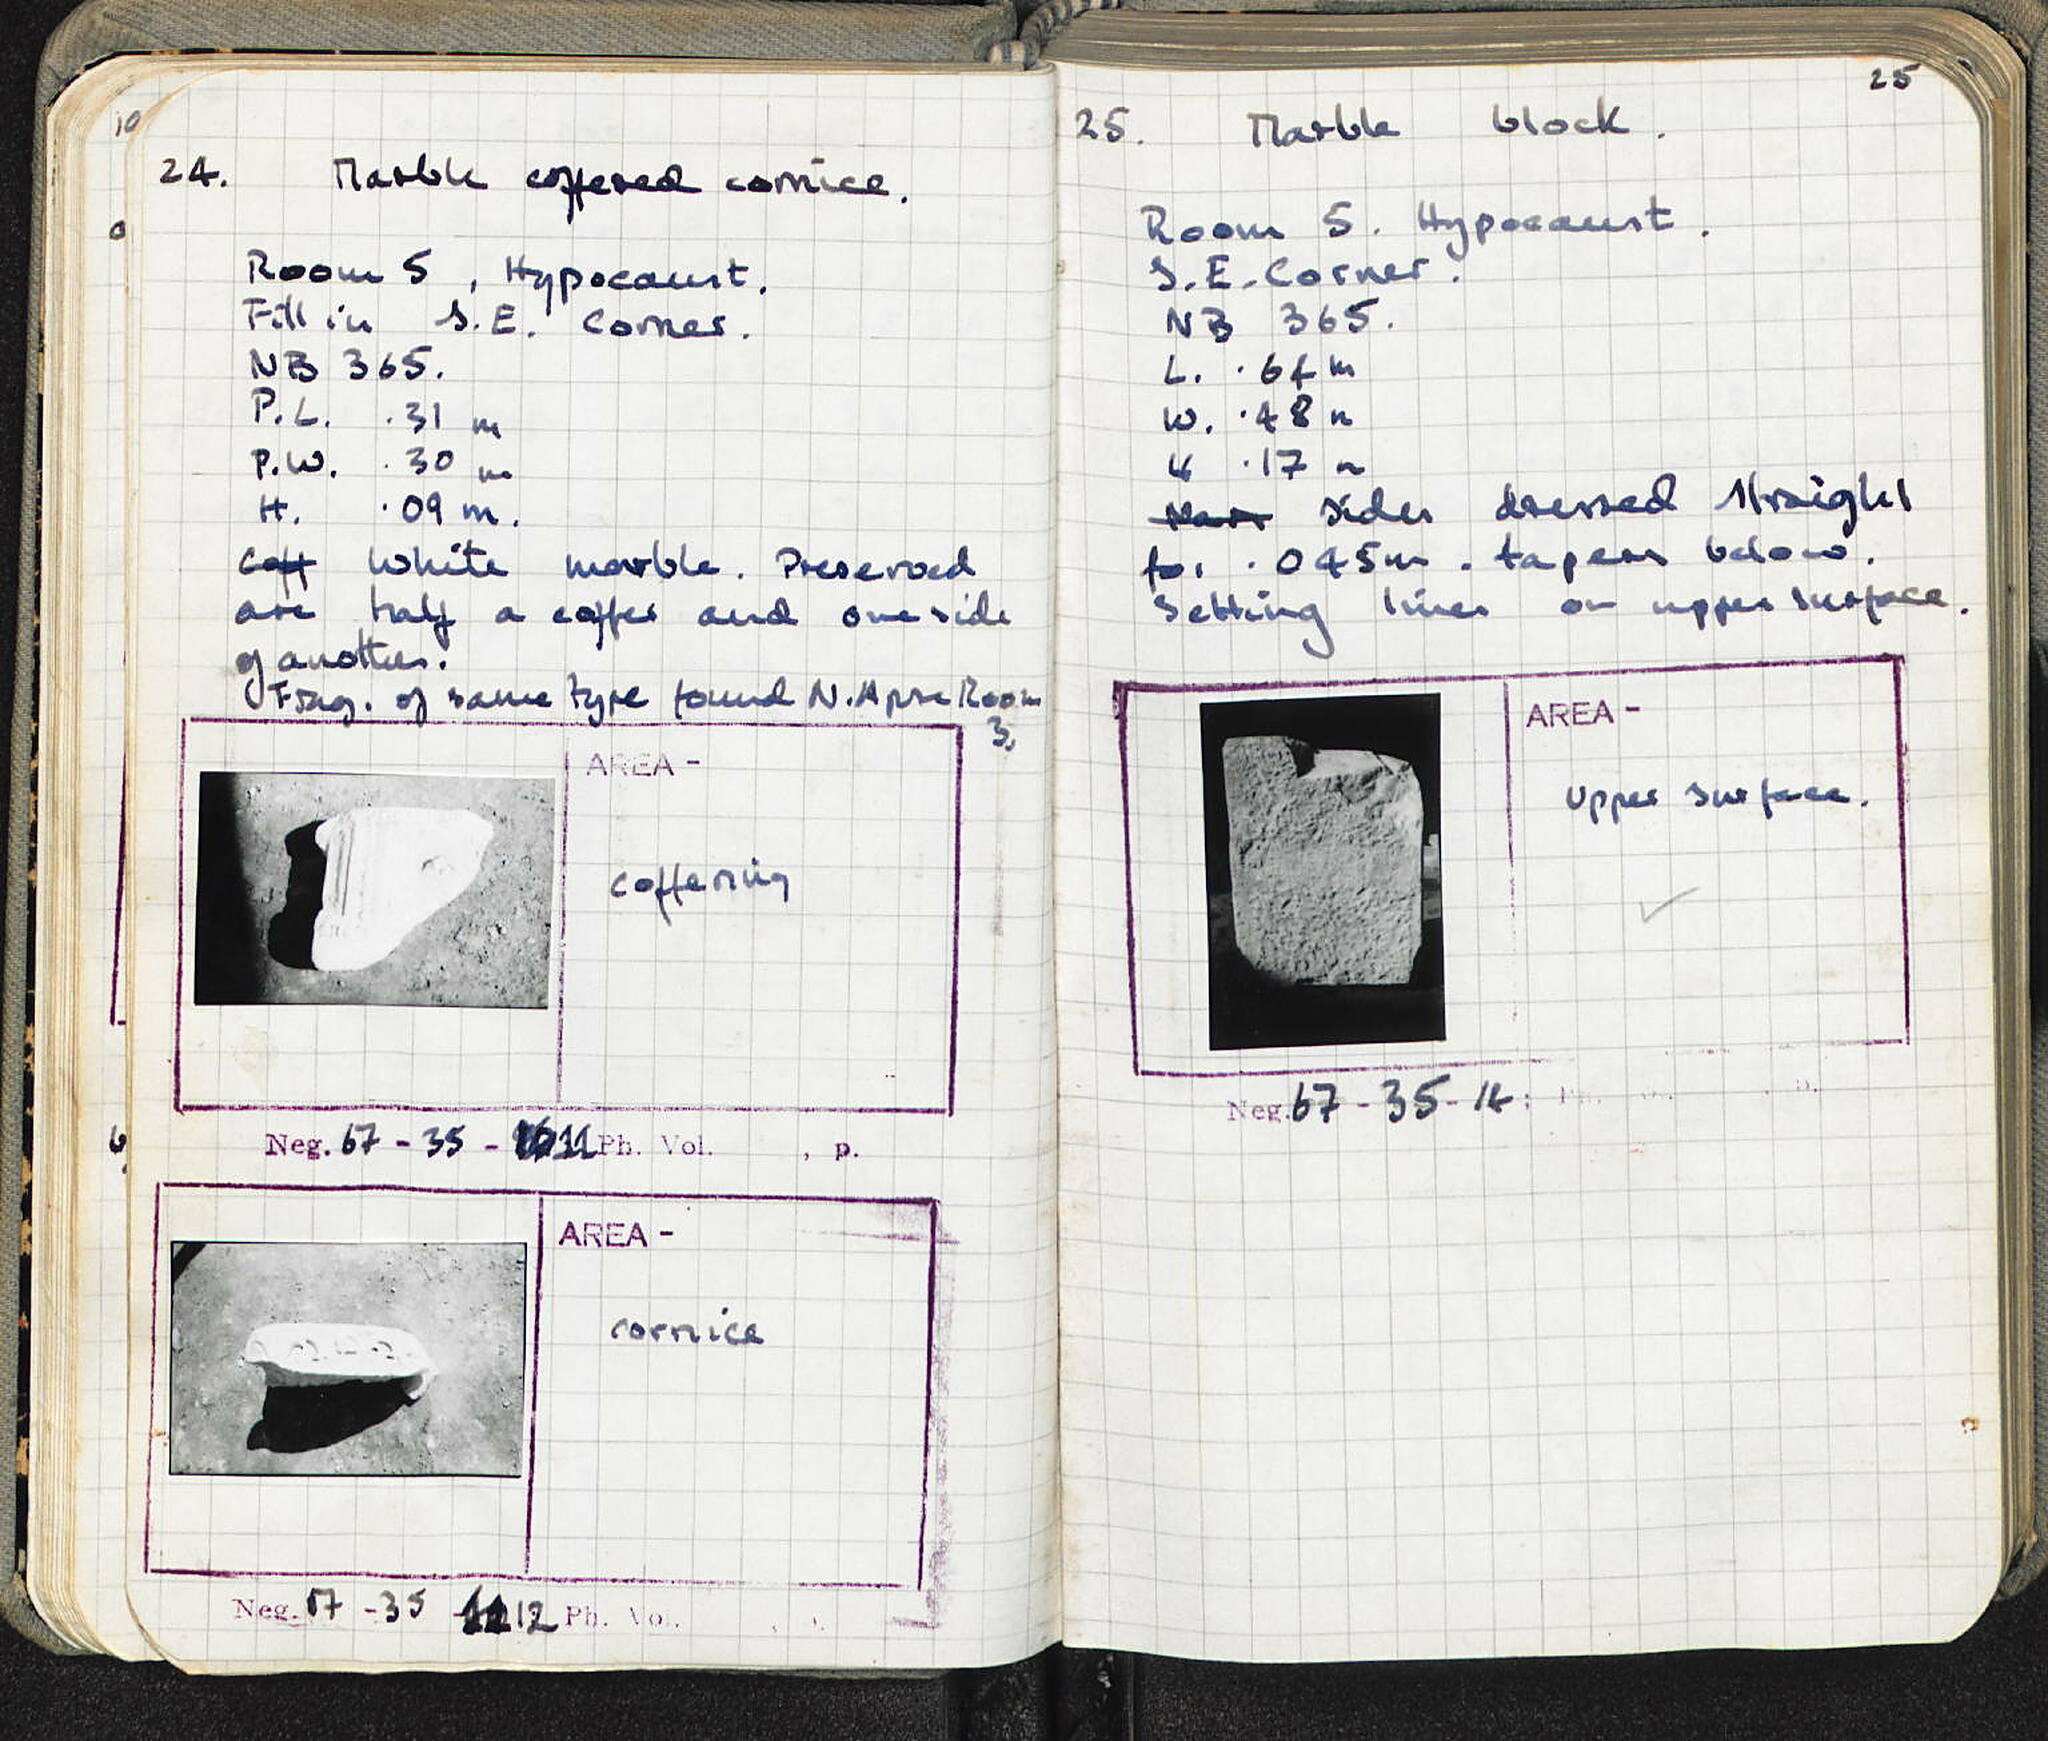 10
24. Marble coffered cornice.
Room 5, Hypocaust.
Fill in S.E. Corner.
NB 365.
P.L. .31 m
P.W. .30 m
H. .09 m.
Coff White marble. Preserved
are half a coffer and one side
of another.
Frag. of same type found N. Apse Room
3.
AREA -
coffering
Neg. 67 - 35 - 11 Ph. Vol. , p.
AREA -
cornice
Neg. 67 - 35 12 Ph. Vol.
25
25. Marble block.
Room 5. Hypocaust.
S.E. Corner.
NB 365.
L. .64 m
W. .48 m
H .17 m
sides dressed straight
for .045m. tapers below.
Setting lines on upper surface.
AREA -
Upper surface.
Neg. 67 - 35 - 14 ;